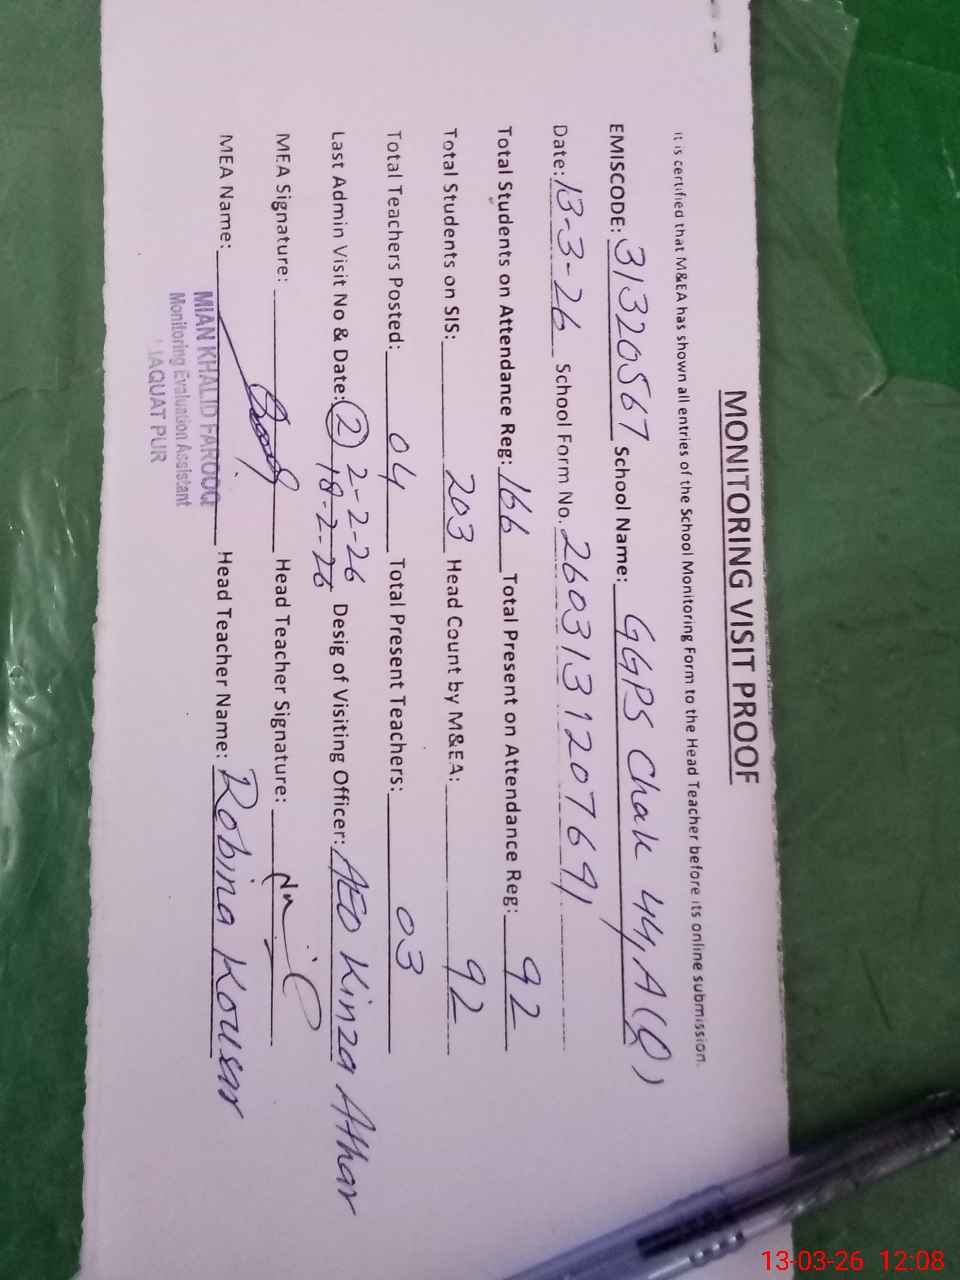 MONITORING VISIT PROOF
It is certified that M&EA has shown all entries of the School Monitoring Form to the Head Teacher before its online submission.
EMISCODE: 31320567 School Name: GGPS Chak 44, A (Q)
Date: 13-3-26 School Form No. 2603131207691
Total Students on Attendance Reg: 166 Total Present on Attendance Reg: 92
Total Students on SIS: 203 Head Count by M&EA: 92
Total Teachers Posted: 04 Total Present Teachers: 03
Last Admin Visit No & Date: 2 2-2-26 Desig of Visiting Officer: AEO Kinza Athar
18-2-26
MEA Signature: Head Teacher Signature:
MEA Name: Head Teacher Name: Robina Kousar
MIAN KHALID FAROOQ
Monitoring Evaluation Assistant
LIAQUAT PUR
13-03-26 12:08